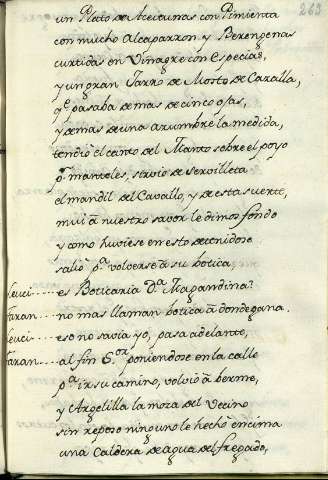 263
un Plato de Aceitunas con Pimienta
con mucho Alcaparron y Berengenas
curtidas en Vinagre con especias,
y un gran Jarro de Mosto de Cazalla,
qe. pasaba de mas de cinco ojas,
y demas de una azumbre la medida,
tendió el canto del Manto sobre el poyo
pr. manteles, sirvio de servilleta
el mandil del Cavallo, y de esta suerte,
mui á nuestro savor le dimos fondo
y como huviese en esto detenidose
salió pa. volverse á su botica
leuci..... es Boticaria Da. Magandina?
faran..... no mas llaman botica á dondegana.
leuci..... eso no savia yo, pasa adelante,
faran..... al fin Sor. poniendose en la calle
pa. ir su camino, volvió á verme,
y Argelilla la moza del Vecino
sin reposo ninguno le hechó encima
una Caldera de agua del fregado,